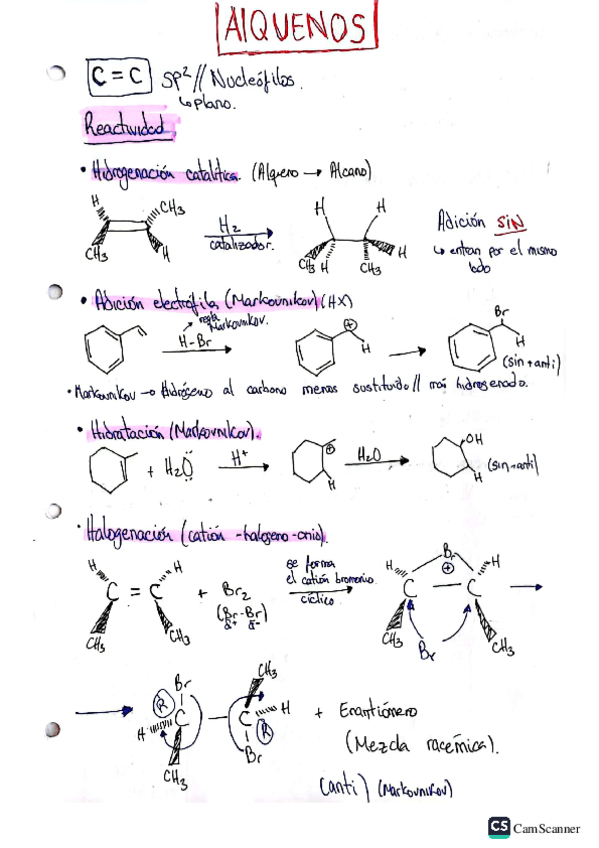 AlQUENOS
C = C sp² // Nucleófilos.
↳plano.
Reactividad
• Hidrogenación catalítica. (Alqueno → Alcano)
H CH3 CH3 H
H2
catalizador.
H H CH3 H CH3 H
Adición SIN
↳ entran por el mismo
lado
• Adición electrófila (Markovnikov) (HX)
regla
Markovnikov.
H-Br
⊕ H
Br H
(sin + anti)
• Markovnikov → Hidrógeno al carbono menos sustituido // más hidrogenado.
• Hidratación (Markovnikov).
+ H2O H+ ⊕ H H2O OH H (sin+anti)
• Halogenación (catión -halogeno-onio).
H H C = C CH3 CH3
+ Br2
(Br-Br)
δ+ δ-
se forma
el catión bromonio
cíclico
Br ⊕ H H C — C CH3 CH3
Br
Br CH3 R C — C H H R CH3 Br
+ Enantiómero
(Mezcla racémica).
(anti) (Markovnikov)
CS CamScanner